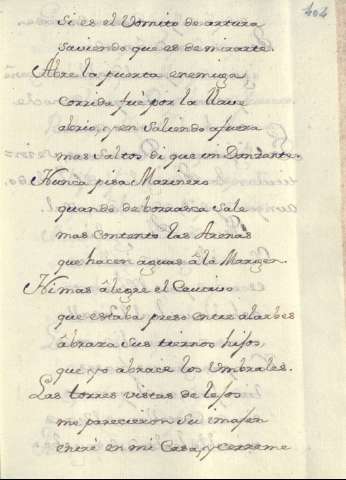 404
si es el Vomito de artura
saviendo que es de mirarte.
Abre la puerta enemiga
corrida fuè por la llave
abrio, y en saliendo afuera
mas saltos di que un Danzante.
Nunca pisa Marinero
quando de borrasca sale
mas contento las Arenas
que hacen aguas â la Margen.
Ni mas âlegre el Cautivo
que estaba preso entre alarbes
âbraza sus tiernos hijos,
que yo abracè los Umbrales.
Las torres vistas de lejos
me parecieron su imajen
entrè en mi Casa, y cerreme